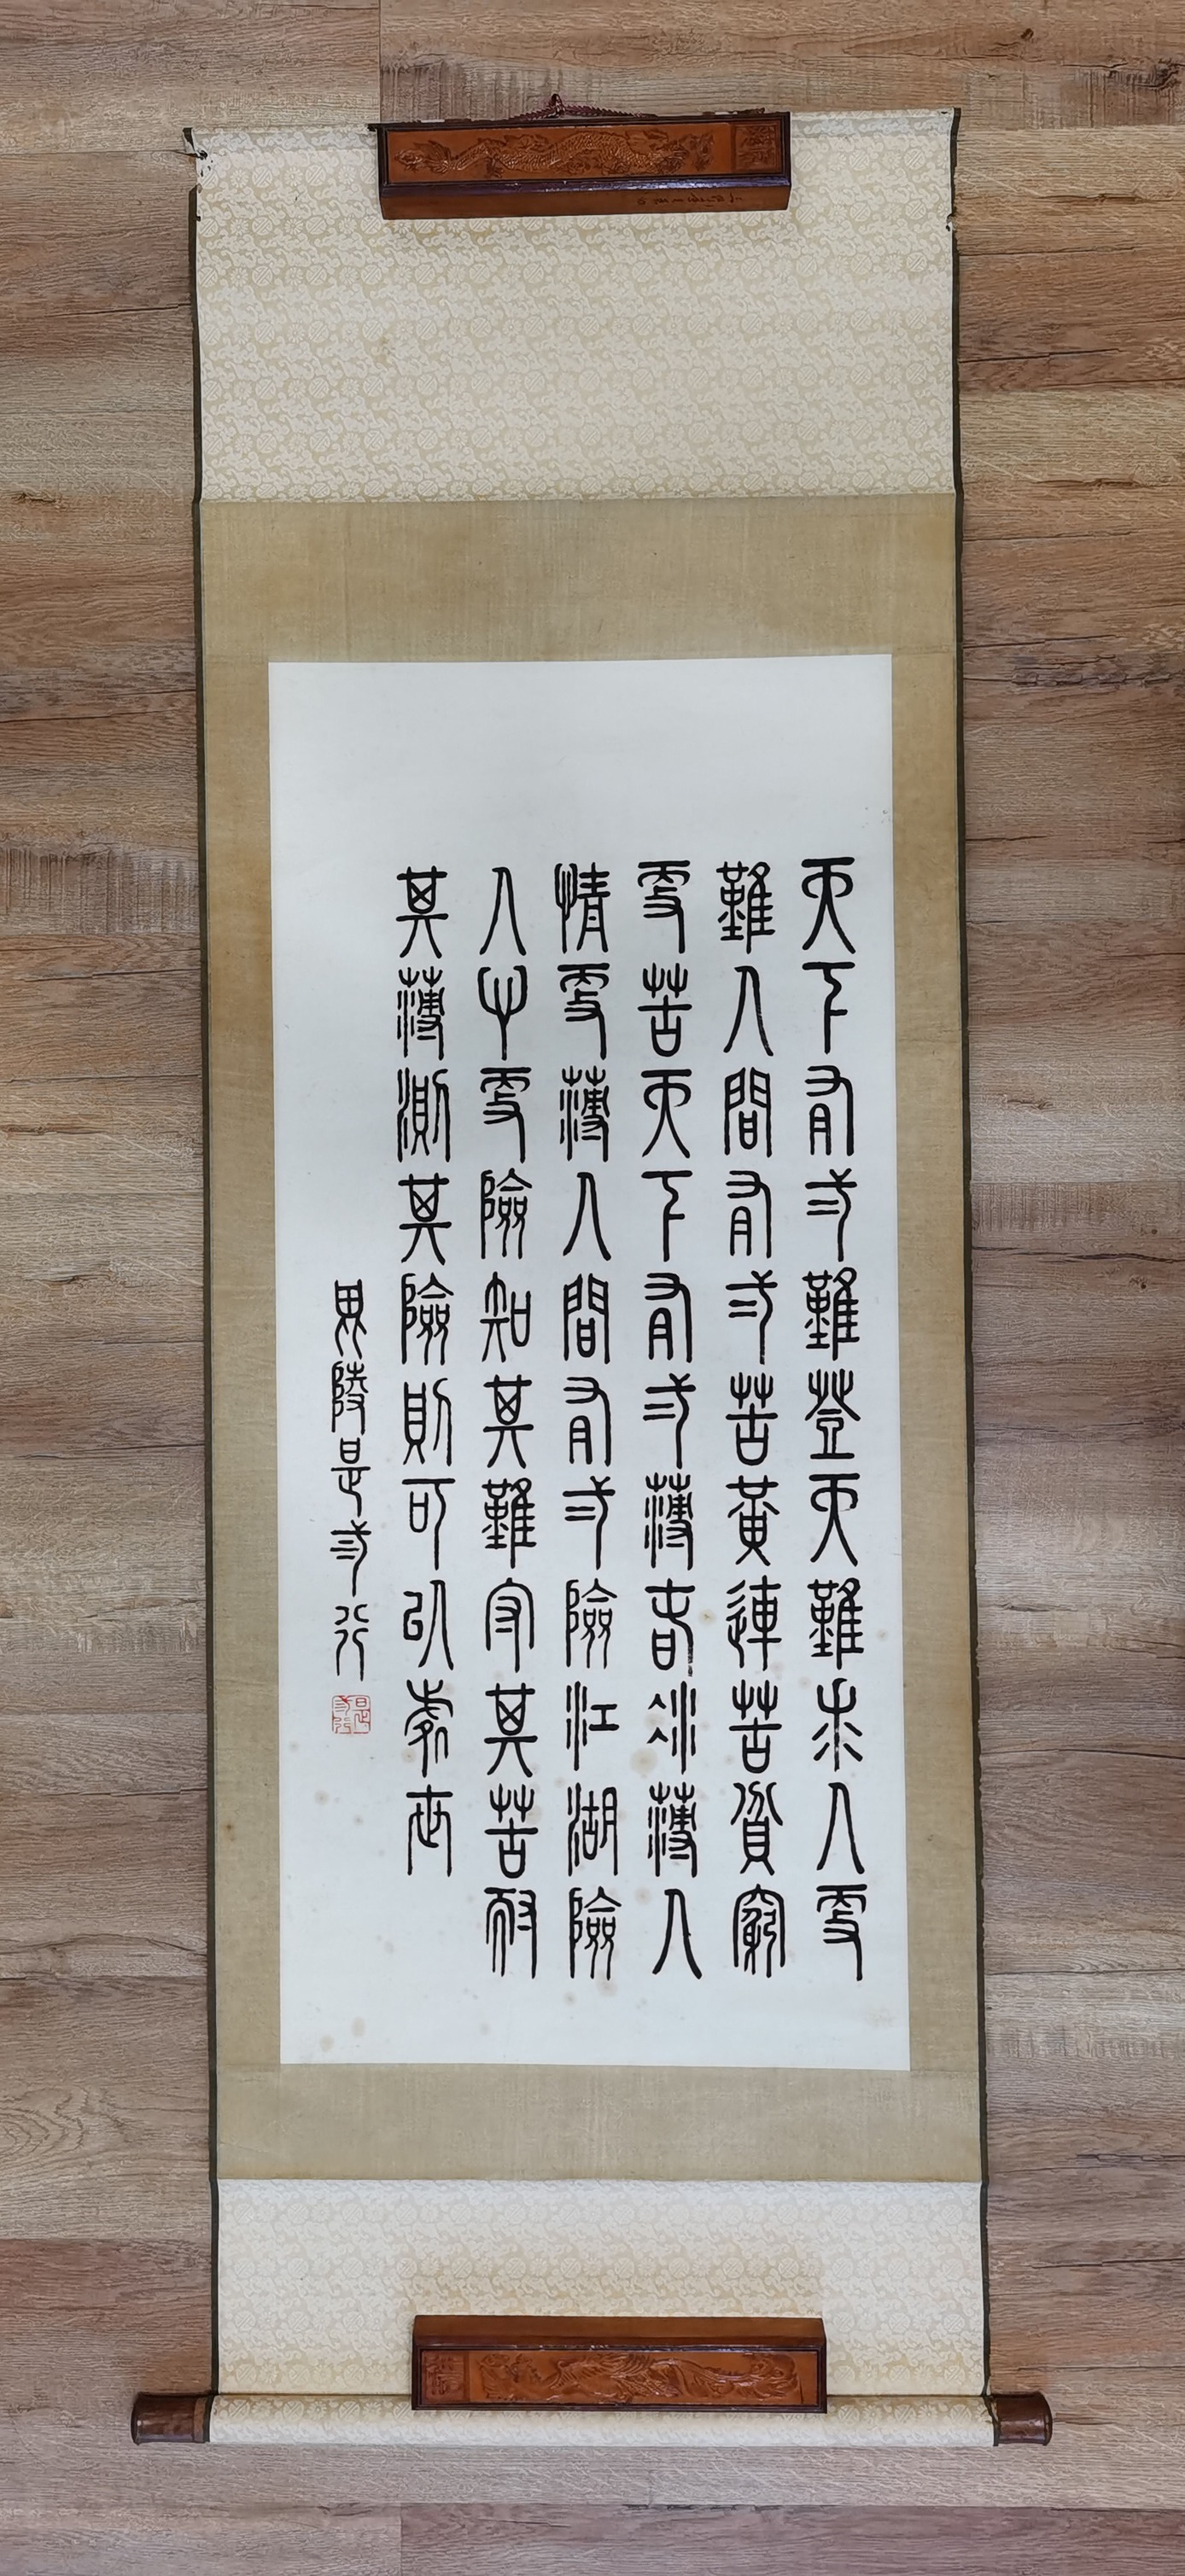 天下有弍難登天難求人更
難人間有弍苦黃連苦貧窮
更苦天下有弍薄春冰薄人
情更薄人間有弍險江湖險
人心更險知其難守其苦耐
其薄測其險則可以處世
毘陵是弍行
是弍行